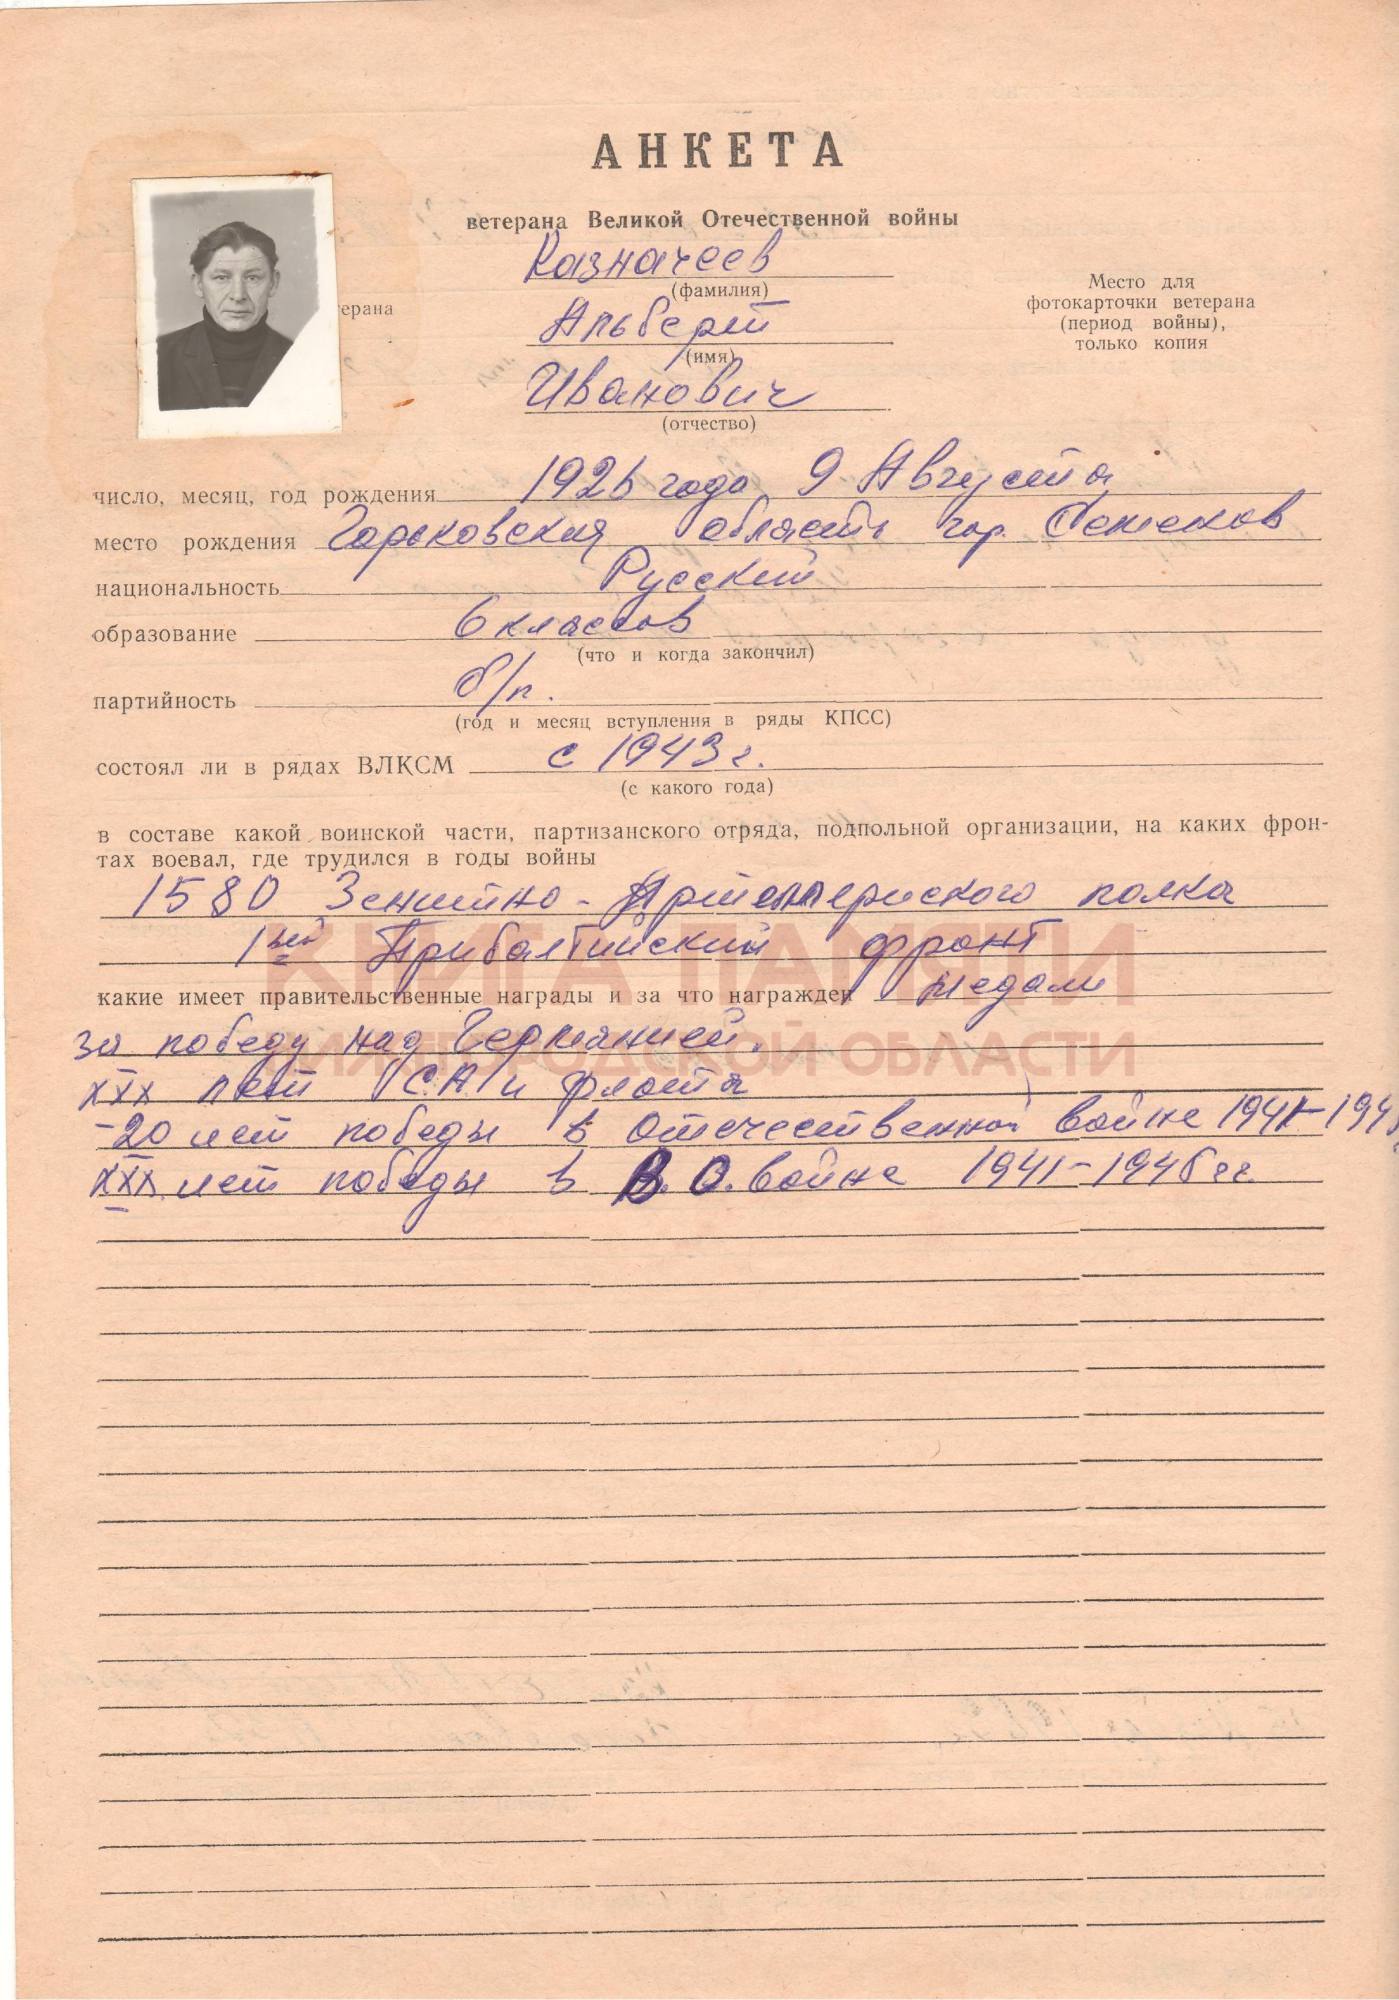 АНКЕТА
ветерана Великой Отечественной войны
Казначеев
(фамилия)
Альберт
(имя)
Иванович
(отчество)
ерана
Место для
фотокарточки ветерана
(период войны),
только копия
число, месяц, год рождения 1926 года 9 Августа
место рождения Горьковская область гор.
национальность Русский
образование 6 классов
(что и когда закончил)
партийность б/п.
(год и месяц вступления в ряды КПСС)
состоял ли в рядах ВЛКСМ с 1943 г.
(с какого года)
в составе какой воинской части, партизанского отряда, подпольной организации, на каких фрон-
тах воевал, где трудился в годы войны
1580 Зенитно-Артиллерийского полка
1ый Прибалтийский фронт
КНИГА ПАМЯТИ
какие имеет правительственные награды и за что награжден медали
за победу над Германией.
НИЖЕГОРОДСКОЙ ОБЛАСТИ
XXX лет С.А. и флота
-20 лет победы в Отечественной войне 1941-1945
XXX лет победы в В.О. войне 1941-1945 гг.